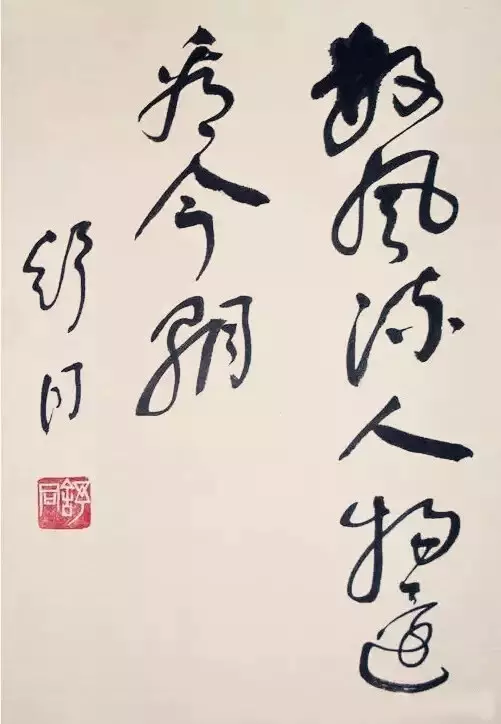 数风流人物还
看今朝
舒同
舒同